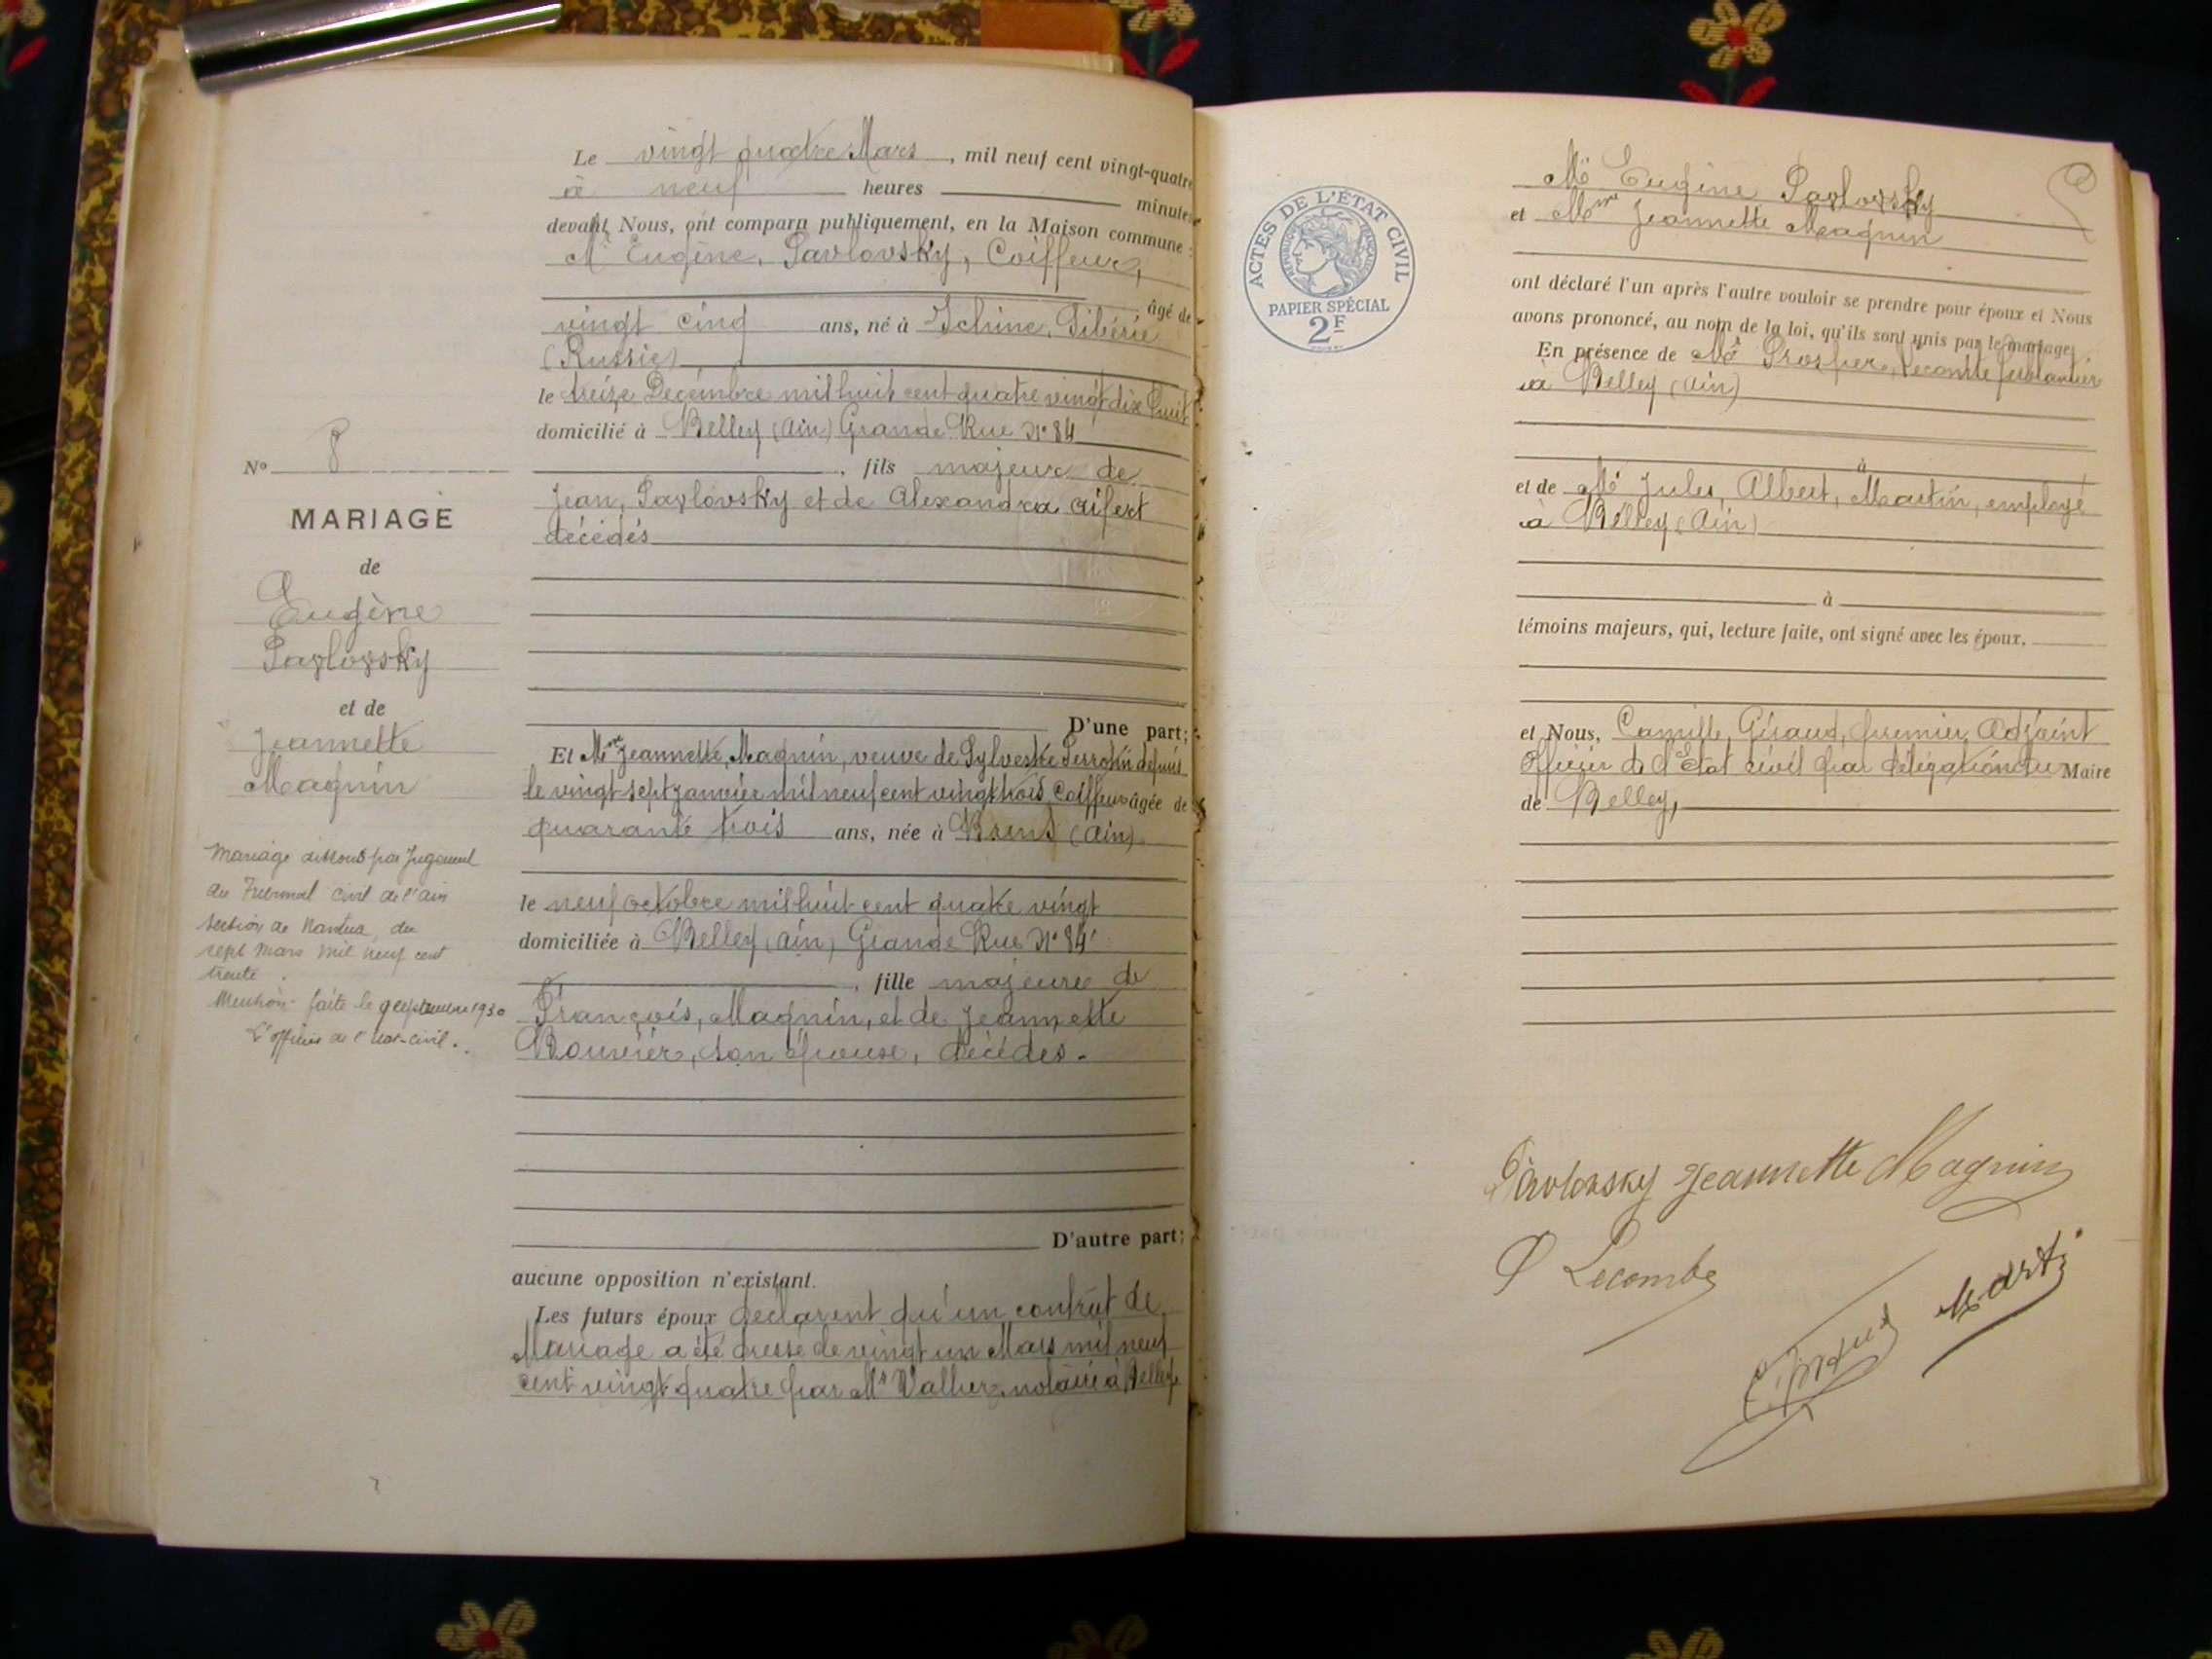 Le vingt quatre Mars, mil neuf cent vingt-quatre
à neuf heures minutes
devant Nous, ont comparu publiquement, en la Maison commune :
Mr Eugène, Pavlovsky, Coiffeur,
âgé de
vingt cinq ans, né à Ichine, Sibérie
(Russie)
le treize Décembre mil huit cent quatre vingt dix huit
domicilié à Belley (Ain) Grande Rue N° 84
, fils majeur de
Jean, Pavlovsky et de Alexandra Aifert
décédés
D'une part;
Et Mme Jeannette, Magnin, veuve de Sylvestre Perrotin depuis
le vingt sept janvier mil neuf cent vingt trois, Coiffeur âgée de
quarante trois ans, née à Brens (Ain)
le neuf octobre mil huit cent quatre vingt
domiciliée à Belley, Ain, Grande Rue N° 84
, fille majeure de
François, Magnin, et de Jeannette
Bouvier, son épouse, décédés.
D'autre part;
aucune opposition n'existant.
Les futurs époux déclarent qu'un contrat de
Mariage a été dressé le vingt un Mars mil neuf
cent vingt quatre par Me notaire à Belley
N° 8
MARIAGE
de
Eugène
Pavlovsky
et de
Jeannette
Magnin
Mariage dissous par Jugement
du Tribunal Civil de l'Ain
Section de Nantua, du
sept Mars mil neuf cent
trente.
Mention faite le 9 septembre 1930
L'officier de l'Etat-civil.
ACTES DE L'ÉTAT CIVIL
RÉPUBLIQUE FRANÇAISE
PAPIER SPÉCIAL
2F
Mr Eugène Pavlovsky
et Mme Jeannette Magnin
ont déclaré l'un après l'autre vouloir se prendre pour époux et Nous
avons prononcé, au nom de la loi, qu'ils sont unis par le mariage.
En présence de Mr Prosper, Lecomte ferblantier
à Belley (Ain)
à
et de Mr Jules, Albert, Martin, employé
à Belley (Ain)
à
témoins majeurs, qui, lecture faite, ont signé avec les époux.
et Nous, Camille, Giraud, premier Adjoint
Officier de l'Etat civil par délégation du Maire
de Belley,
Pavlovsky Jeannette Magnin
P Lecomte
Martin
C. Giraud